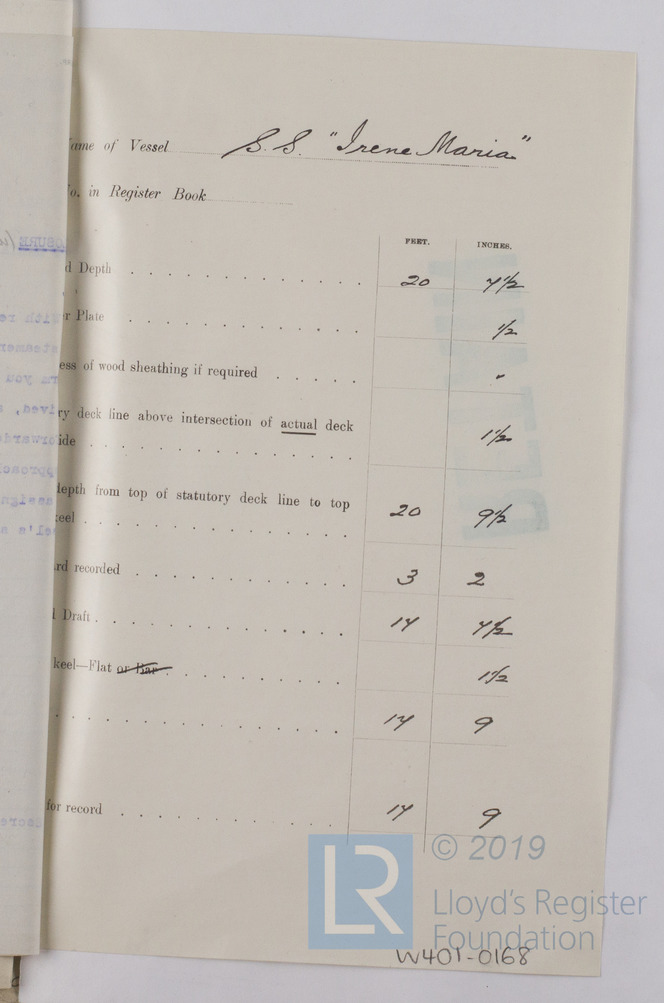 ame of Vessel S.S. "Irene Maria"
o. in Register Book
FEET. INCHES.
d Depth 20 7½
r Plate ½
ess of wood sheathing if required -
ry deck line above intersection of actual deck
ide 1½
depth from top of statutory deck line to top
keel 20 9½
rd recorded 3 2
Draft 17 7½
keel—Flat or Bar 1½
17 9
for record 17 9
© 2019
LR
Lloyd's Register
Foundation
W401-0168